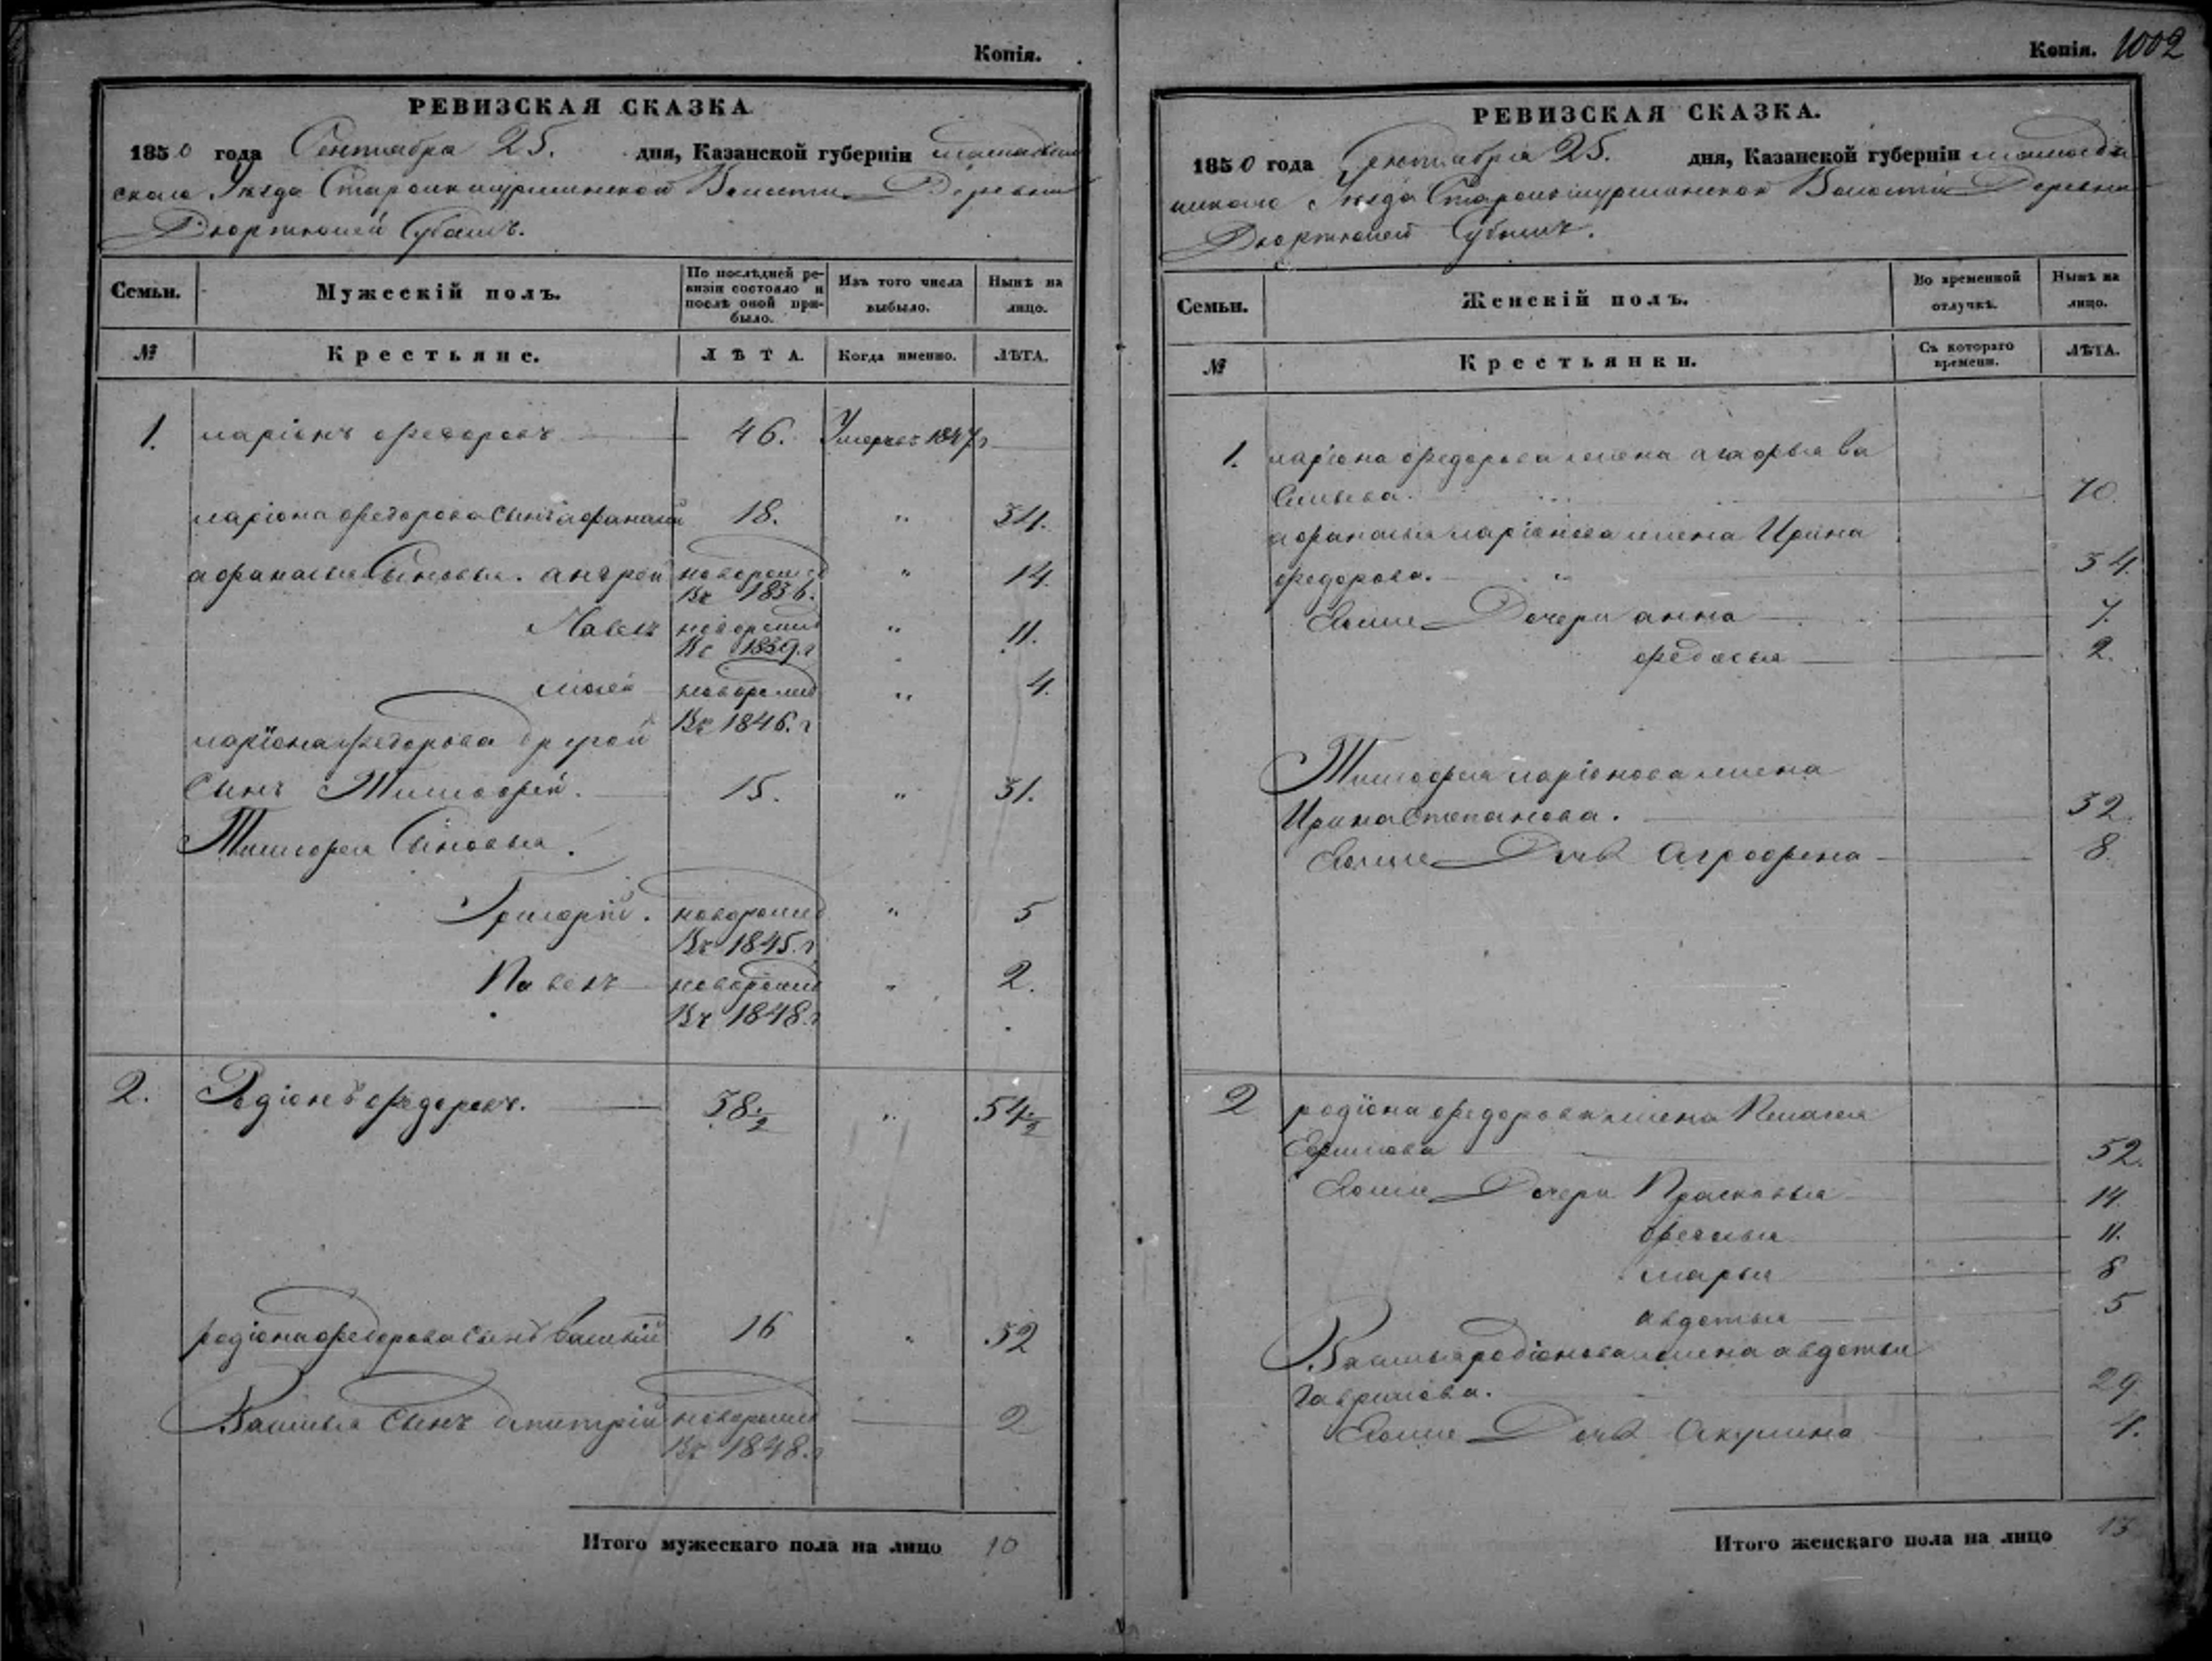 Копія.
РЕВИЗСКАЯ СКАЗКА
1850 года Сентября 25. дня, Казанской губерніи
скаго Уѣзда Волости Деревни
Дюртюлей Субашъ.
Семьи.
Мужескій полъ.
По послѣдней ре-
визіи состояло и
послѣ оной при-
было.
Изъ того числа
выбыло.
Нынѣ на
лицо.
№
Крестьяне.
ЛѢТА.
Когда именно.
ЛѢТА.
1. ларіонъ федоровъ 46. Умерлъ 1847 г
ларіона федорова Сынъ афанасий 18. " 34.
афанасья Сыновья. андрей новорожд " 14.
Въ 1836.
Павелъ новорожд " 11.
Въ 1839. г
новорожд " 4.
Въ 1846. г
ларіона федорова другой
Сынъ Тимофей. 15. " 31.
Тимофея Сыновья.
Григорій. новорожд " 5
Въ 1845. г
Павелъ новорожд " 2.
Въ 1848. г
2. Родіонъ федоровъ. 38. 1/2 " 54. 1/2
родіона федорова Сынъ Василий 16 " 32
Василья Сынъ дмитрій новорожд 2
Въ 1848. г
Итого мужескаго пола на лицо 10
Копія. 1002
РЕВИЗСКАЯ СКАЗКА.
1850 года Сентября 25. дня, Казанской губерніи
Уѣзда Волости Деревни
Дюртюлей Субашъ.
Семьи.
Женскій полъ.
Во временной
отлучкѣ.
Нынѣ на
лицо.
№
Крестьянки.
Съ котораго
времени.
ЛѢТА.
1. ларіона федорова жена агафья Ва
сильева. 70.
афанасья ларіонова жена Ирина
федорова. " 34.
Ихже Дочери анна 7.
федосья 2.
Тимофея ларіонова жена
Ирина Степанова. 32.
Ихже Дочь Аграфена 8.
2 родіона федорова жена Пелагея
Ефимова 52.
Ихже Дочери Прасковья 14.
11.
марья 8
авдотья 5
Василья родіонова жена авдотья
гаврилова. 29
Ихже Дочь Акулина 4.
Итого женскаго пола на лицо 13